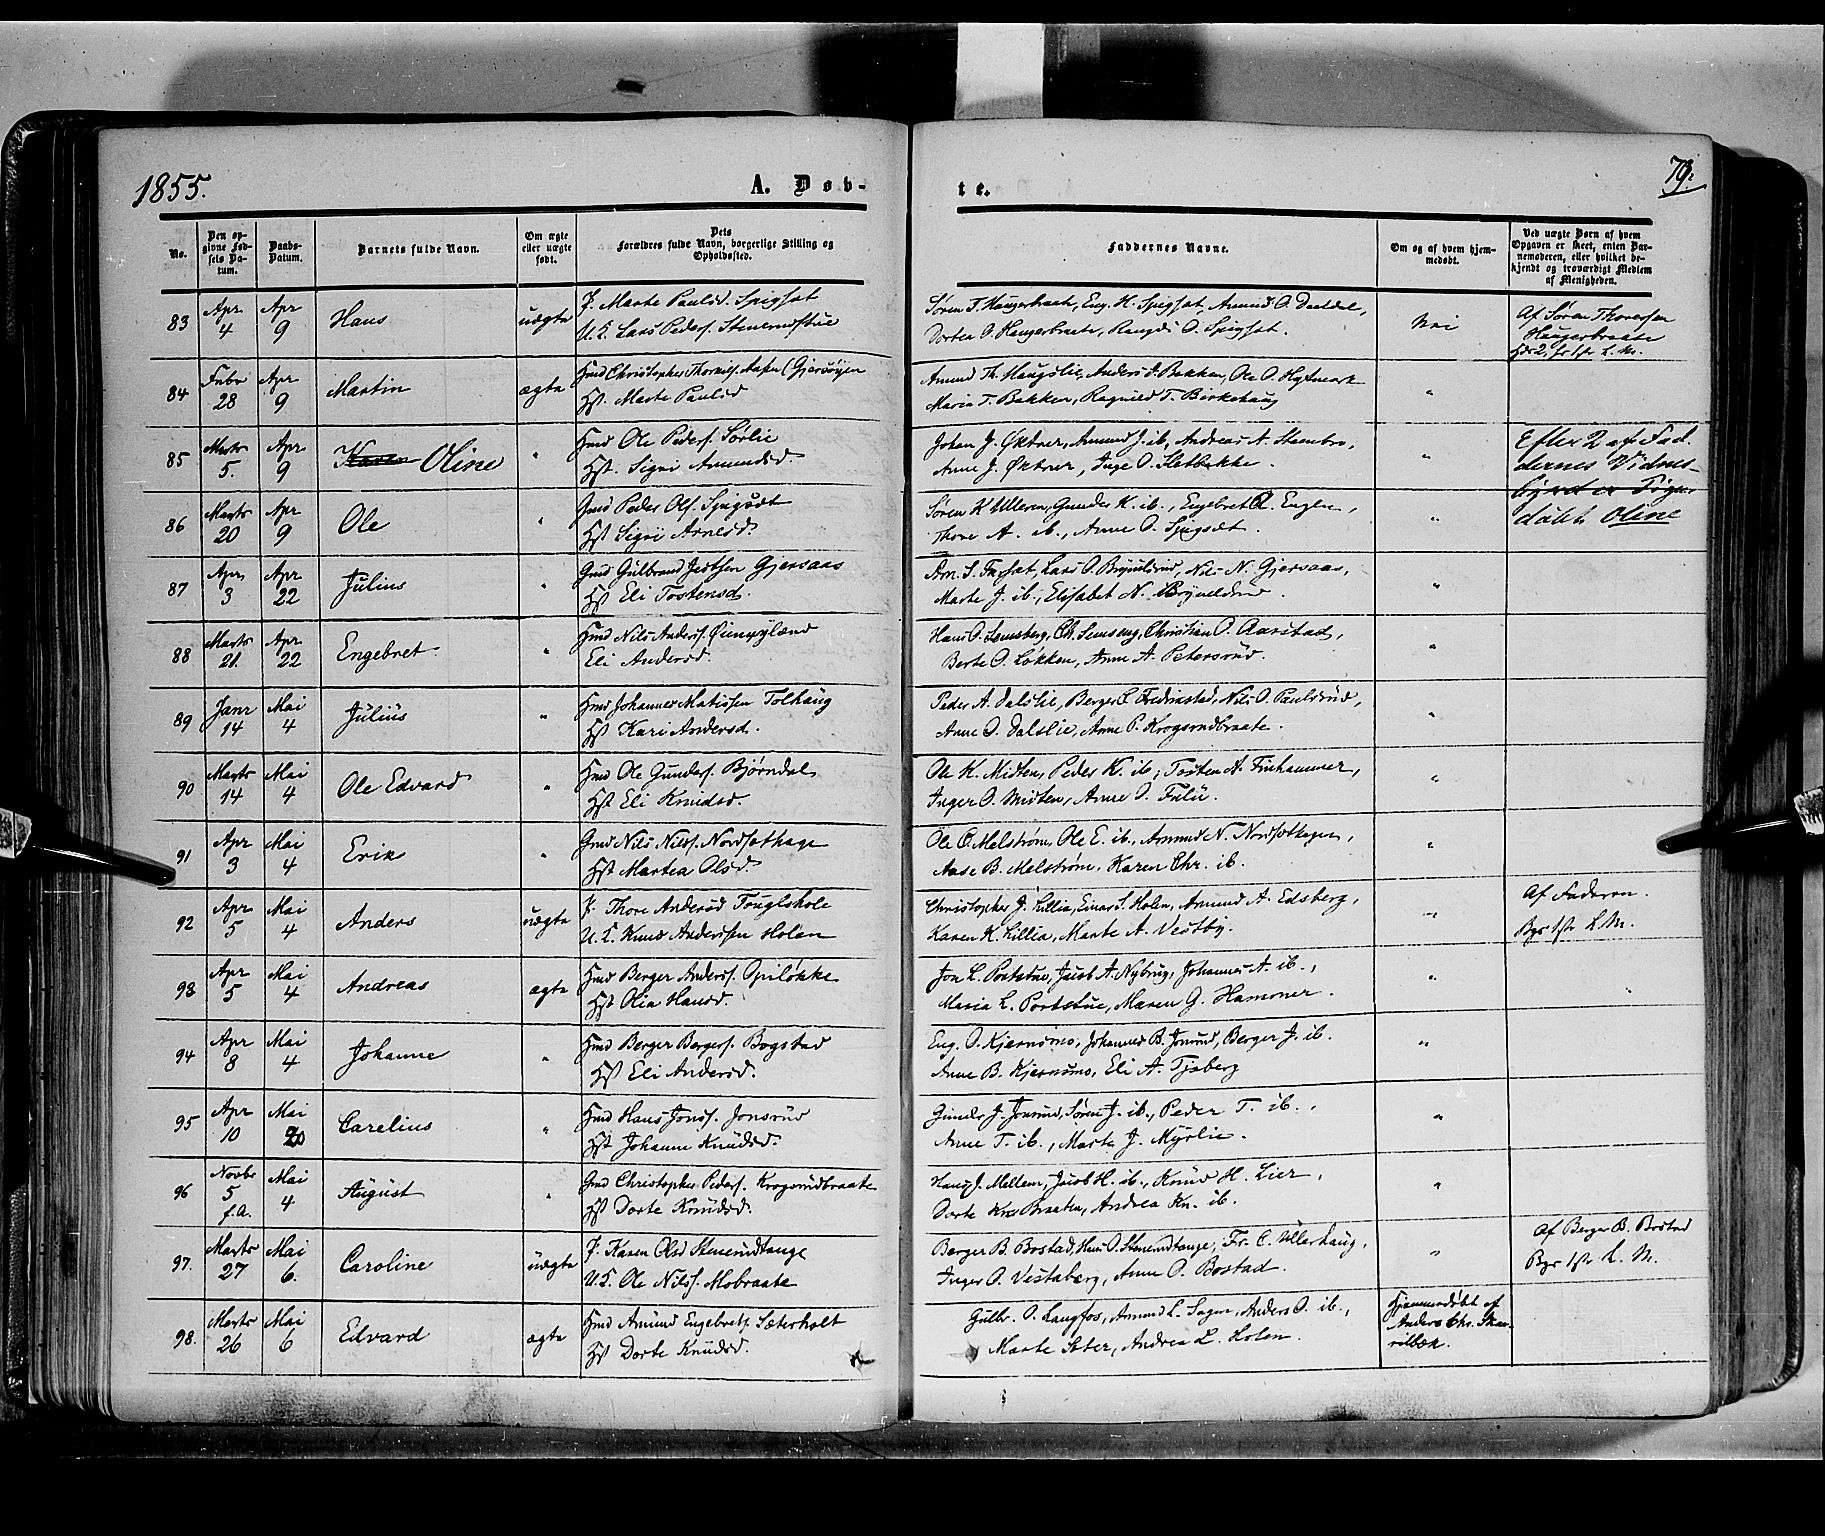 1855.
A. Døb-
te.
79.
No.
Den op-
givne Fød-
sels Da-
tum.
Daabs-
Datum.
Barnets fulde Navn.
Om ægte
eller uægte
født.
Dets
Forældres fulde Navn, borgerlige Stilling og
Opholdssted.
Faddernes Navne.
Om og af hvem hjem-
medøbt.
Ved uægte Børn af hvem
Opgaven er skeet, enten Bar-
nemoderen, eller hvilket be-
kjendt og troværdigt Medlem
af Menigheden.
83
Apr
4
Apr
9
Hans
uægte
P. Marte Paulsd. Spigset
U.K. Lars Peders. Stenerudstue
Søren T. Haugerbraate, Eng. H. Spigset, Amund O. Daaldal,
Dortea O. Haugerbraate, Rangdi O. Spigset.
Nei
Af Søren Thoresen
Haugerbraate
84
Febr
28
Apr
9
Martin
ægte
Hmd Christopher Gjersøyen
Hst. Marte Paulsd
Amund Th. Haugslie, Anders J. Bakken, Ole O. Hytmoek
Maria T. Bakken, Ragnild T. Birkehaug
"
85
Marts
5.
Apr
9
Karen Oline
"
Hmd Ole Peders. Sørlie
Hst. Sigri Amundsd.
Johan J. Øktner, Amund J. ib, Andreas A. Stenbro,
Anne J. Øktner, Inge O. Sletbakke.
"
Efter 2 af Fad.
dernes Vidnes-
byrd er Pigen
døbt Oline
86
Marts
20
Apr
9
Ole
"
Gmd Peder Ols. Spigset
Hst Sigri Arnesd.
Søren K Ulleren, Gunder K. ib., Engebret A. Engen,
Thore A. ib., Anne O. Spigset.
"
87
Apr
3
Apr
22
Julius
"
Gmd Gulbrand Gjersaas
Hst Eli Tostensd.
Arn. S. Lars O. Brynildsrud, Nils N. Gjersaas,
Marte J. ib., Elisabet N. Brynildsrud
"
88
Marts
21
Apr
22
Engebret
"
Hmd Nils Anders.
Eli Andersd.
Hans O. Christian O. Aarstad,
Berte O. Løkken, Anne A. Petersrud.
"
89
Janr
14
Mai
4
Julius
"
Hmd Johannes Matissen Tolhaug
Hst Kari Andersd.
Peder A. Dalslie, Berger Nils O. Paulsrud,
Anne O. Dalslie, Anne P. Krogsrudbraate.
"
90
Marts
14
Mai
4
Ole Edvard
"
Hmd Ole Gunders. Bjørndal
Hst Eli Knudsd.
Ole K. Midten, Peder K. ib., Tosten A. Finhammer,
Inger O. Midten, Anne O. Fulu.
"
91
Apr
3
Mai
4
Erik
"
Gmd Nils Nils. Nordsethage
Hst Martea Olsd.
Ole O. Melstrøm, Ole E. ib., Amund N. Nordsethagen,
Aase B. Melstrøm, Karen Chr. ib.
"
92
Apr
5
Mai
4
Anders
uægte
P. Thore Andersd Fouglshole
U.K. Knud Anderssen Holen
Christopher J. Lillia, Einar S. Holen, Amund A. Edsberg,
Karen K. Lillia, Marte A. Vestby.
"
Af Faderen.
93
Apr
5
Mai
4
Andreas
ægte
Hmd Berger Anders. Opiløkke
Hst Olia Hansd.
Jon L. Portstue, Jacob A. Nybrug, Johannes A. ib.,
Maria L. Portstue, Maren G. Hammer.
"
94
Apr
8
Mai
4
Johanne
"
Hmd Berger Bergers. Bogstad
Hst Eli Andersd.
Eng. O. Kjernsmo, Johannes B. Jonsrud, Berger J. ib.
Anne B. Kjernsmo, Eli A. Tjaberg
"
95
Apr
10
Mai
20
Carelius
"
Hmd Hans Jons. Jonsrud
Hst Johanne Knudsd.
Gunder J. Jonsrud, Søren J. ib., Peder T. ib.,
Anne T. ib., Marte J. Myrlie.
"
96
Novbr
5
f.A.
Mai
4
August
"
Gmd Christopher Peders. Krogsrudbraate
Hst Dorte Knudsd.
Hans J. Mellem, Jacob H. ib., Knud H. Lier,
Dorte Kn. Braaten, Andrea Kn. ib.
"
97.
Marts
27
Mai
6.
Caroline
uægte
P. Karen Olsd Stenerudtange
U.K. Ole Nils. Mobraate
Berger B. Bostad, Hans O. Stenerudtange, Fr. C. Ullerhaug,
Inger O. Vestaberg, Anne O. Bostad.
"
Af Berger B. Bostad
98.
Marts
26
Mai
6
Edvard
ægte
Hmd Amund Engebrets. Sæterholt
Hst Dorte Knudsd.
Gulbr. O. Langfos, Amund L. Sagen, Anders O. ib.,
Marte Seter, Andrea L. Holen.
Hjemmedøbt af
Anders Chr. Skar-